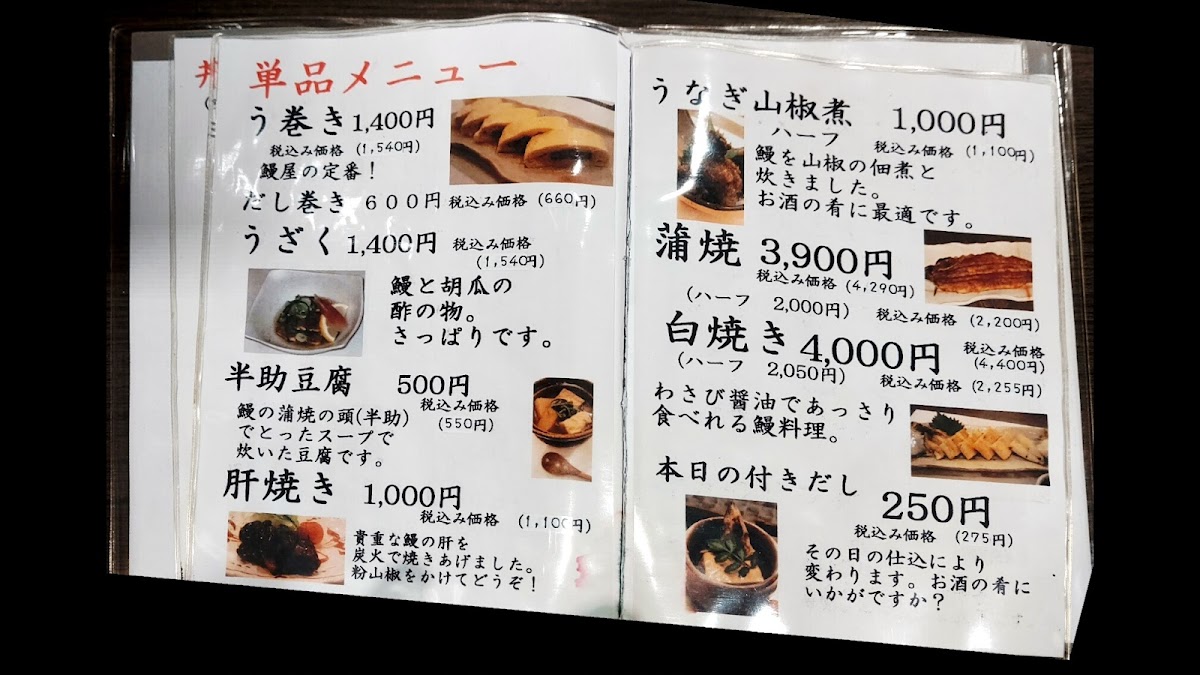 単品メニュー
う巻き 1,400円
税込み価格 (1,540円)
鰻屋の定番!
だし巻き 600円 税込み価格 (660円)
うざく 1,400円 税込み価格
(1,540円)
鰻と胡瓜の
酢の物。
さっぱりです。
半助豆腐 500円
税込み価格
(550円)
鰻の蒲焼の頭(半助)
でとったスープで
炊いた豆腐です。
肝焼き 1,000円
税込み価格 (1,100円)
貴重な鰻の肝を
炭火で焼きあげました。
粉山椒をかけてどうぞ!
うなぎ山椒煮 1,000円
ハーフ 税込み価格 (1,100円)
鰻を山椒の佃煮と
炊きました。
お酒の肴に最適です。
蒲焼 3,900円
税込み価格 (4,290円)
(ハーフ 2,000円) 税込み価格 (2,200円)
白焼き 4,000円 税込み価格
(4,400円)
(ハーフ 2,050円) 税込み価格 (2,255円)
わさび醤油であっさり
食べれる鰻料理。
本日の付きだし 250円
税込み価格 (275円)
その日の仕込により
変わります。お酒の肴に
いかがですか?